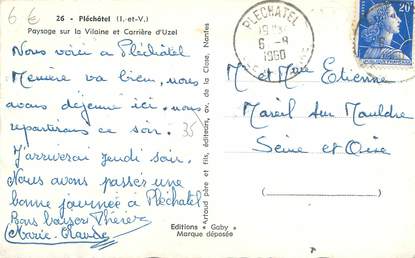 6 €
26 - Pléchâtel (I.-et-V.)
Paysage sur la Vilaine et Carrière d'Uzel
Nous voici à Pléchâtel
va bien, nous
avons déjeuné ici. nous
repartirons ce soir.
35
J'arriverai jeudi soir.
Nous avons passer une
bonne journée à Pléchâtel
Bons baisers Thérèse
Marie-Claude
Artaud père et fils, éditeurs, av. de la Close, Nantes
Editions "Gaby"
Marque déposée
PLECHATEL
6 - 9
1960
20F
M et Mme Etienne
Mareil sur Mauldre
Seine et Oise